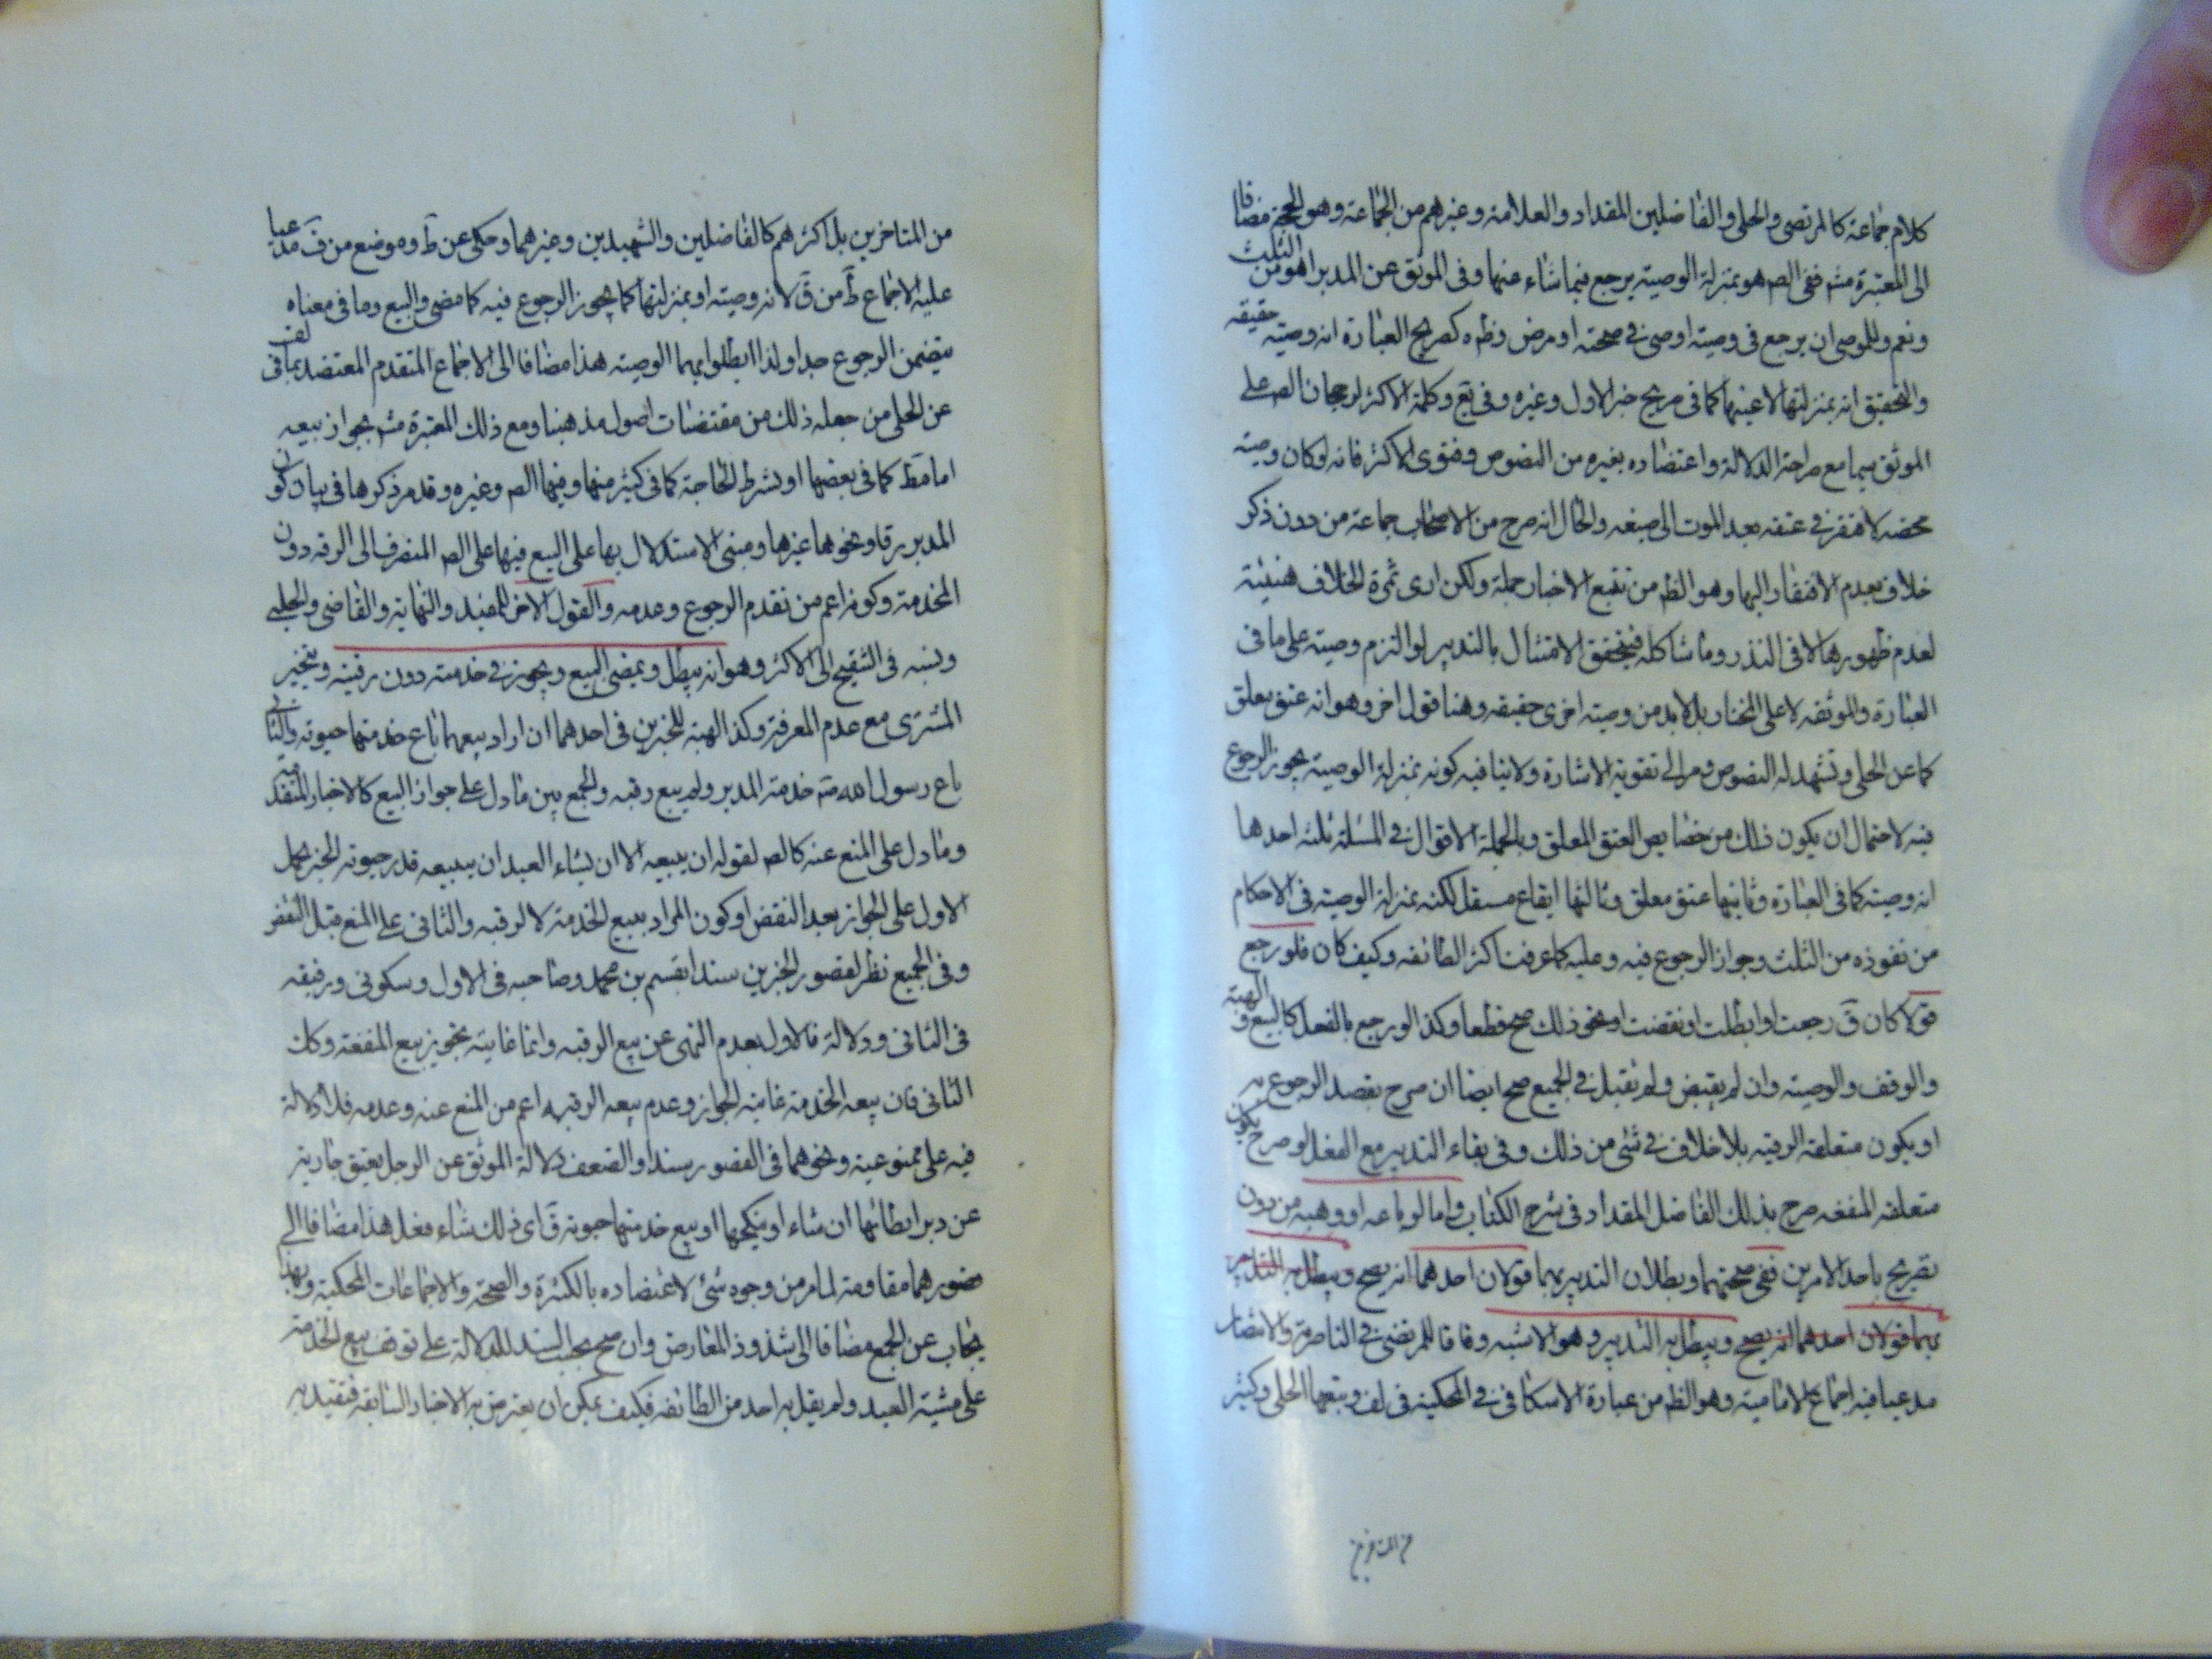 كلام جماعة كالمرتضى والحلى والفاضلين المقداد والعلامة وغيرهم من الجماعة وهو الحجة مضافا
الى المعتبرة منه ففى الصر هو بمنزلة الوصية يرجع فيما شاء منها وفى الموثق عن المدبر اهو من الثلث
ونعم وللموصى ان يرجع فى وصيته اوصى فى صحته او مرض وظه كصريح العبارة انه وصية حقيقه
والتحقيق انه بمنزلتها لا عينها كما فى صريح خبر الاول وغيره وفى يع وكلمة الاكثر لرجحان الصر على
الموثق سيما مع صراحة الدلالة واعتضاده بغيره من النصوص وفتوى الاكثر فانه لو كان وصية
محضه لافتقر فى عتقه بعد الموت الى صيغه والحال انه صرح من الاصحاب جماعة من دون ذكر
خلاف بعدم الافتقار اليها وهو الظم من تتبع الاخبار جملة ولكن ارى ثمرة الخلاف هنيئة
لعدم ظهورها لا فى النذر وما شاكله فيتحقق الامتثال بالتدبير لو التزم وصية على ما فى
العبارة والموثقه لا على المختار بل لا بد من وصية اخرى حقيقه وهنا قول اخر وهو انه عتق بعلق
كما عن الحلى وتشهد له النصوص ومر الى تقوية الاشارة ولا ينافيه كونه بمنزلة الوصية بجوز الرجوع
فيه لاحتمال ان يكون ذلك من خصايص العتق المعلق وبالجملة الاقوال فى المسئلة ثلثة احدها
انه وصية كما فى العبارة وثانيها عتق معلق وثالثها ايقاع مستقل لكنه بمنزلة الوصية فى الاحكام
من نفوذه من الثلث وجواز الرجوع فيه وعليه كما عرفت اكثر الطائفه وكيف كان فلو رجع
قولا كان ق رجعت او ابطلت او نقضت او نحو ذلك صح قطعا وكذا لو رجع بالفعل كالبيع و الهبة
والوقف والوصية وان لم يقبض ولم يقبل فى الجميع صح ايضا ان صرح بقصد الرجوع به
او يكون متعلقة الرقية بلا خلاف فى شئ من ذلك وفى بقاء التدبير مع الفعل لو صرح بكون
متعلقه المنفعه صرح بذلك الفاضل المقداد فى شرح الكتاب واما لو باعه او وهبه من دون
تصريح باحد الامرين ففى صحتهما وبطلان التدبير بهما قولان احدهما انه يصح ويبطل به التدبير
بهما قولان احدهما انه يصح ويبطل به التدبير وهو الاشبه وفاقا للمرتضى فى الناصرية والانتصار
مدعيا فيه اجماع الامامية وهو الظم من عبارة الاسكافى فى المحكية فى لف وتبعهما الحلى وكثير
من المتاخرين بل اكثرهم كالفاضلين والشهيدين وغيرهما وحكى عن ط وه موضع من ف مدعيا
عليه الاجماع ط من ق لانه وصية او بمنزلتها كما يجوز الرجوع فيه كما مضى والبيع وما فى معناه
يتضمن الرجوع جدا ولذا ابطلوا بهما الوصية هذا مضافا الى الاجماع المتقدم المعتضد بما فى لف
عن الحلى من جعله ذلك من مقتضات اصول مذهبنا ومع ذلك المعتبرة منه بجواز بيعه
اما مط كما فى بعضها او بشرط الحاجة كما فى كثير منها وفيها الصر وغيره وقد مر ذكرها فى بيان كون
المدبر رقا ونحوها غيرها ومبنى الاستدلال بها على البيع فيها على الصر المنصرف الى الرقبه دون
الخدمة وكونه اعم من تقدم الرجوع وعدمه والقول الاخر للمفيد والنهاية والقاضى والحلبى
ونسبه فى التنقيح الى الاكثر وهو انه يبطل ويمضى البيع ويجوز فى خدمته دون رقبته ويتخير
المشترى مع عدم المعرفة وكذا الهبة للخبرين فى احدهما ان اراد بيعهما باع خدمتها حيوته والثانى
باع رسول الله ص خدمة المدبر ولم يبع رقبه والجمع بين ما دل على جواز البيع كالاخبار المتقدمة
وما دل على المنع عنه كالصر لقوله ان يبيعه الا ان يشاء العبد ان يبيعه قدر حيوته الخبر بحمل
الاول على الجواز بعد النقض او كون المراد ببيع الخدمة لا الرقبه والثانى على المنع قبل النقض
وفى الجميع نظر لقصور الخبرين سندا بقسم بن محمد وصاحبه فى الاول وسكونى ورفيقه
فى الثانى ودلالة فالاول بعدم النهى عن بيع الرقبه وانما غايته تجويز بيع المنفعة وكك
الثانى فان بيعه الخدمة غايته الجواز وعدم بيعه الرقبه اعم من المنع عنه وعدمه فلا دلالة
فيه على ممنوعية ونحوهما فى القصور سندا والضعف دلالة الموثق عن الرجل يعتق جارية
عن دبر ايطائها ان شاء او ينكحها او بيع خدمتها حيوته ق اى ذلك شاء فعل هذا مضافا الى
قصورهما مقاومة لما مر من وجوه شتى لاعتضاده بالكثرة والصحة والاجماعات المحكية وبهذا
يجاب عن الجمع مضافا الى شذوذ المعارض وان صح بحسب السند للدلالة على توقف بيع الخدمة
على مشية العبد ولم يقل به احد من الطائفه فكيف يمكن ان يعترض به الاخبار السابقه فتقيد به